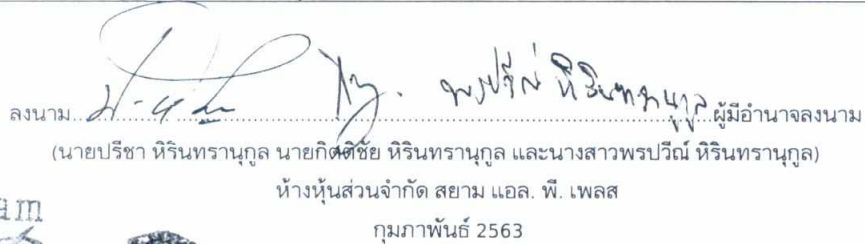 พรปวีณ์ หิรินทรานุกูล
ลงนาม........................................ผู้มีอำนาจลงนาม
(นายปรีชา หิรินทรานุกูล นายกิตติชัย หิรินทรานุกูล และนางสาวพรปวีณ์ หิรินทรานุกูล)
ห้างหุ้นส่วนจำกัด สยาม แอล. พี. เพลส
กุมภาพันธ์ 2563